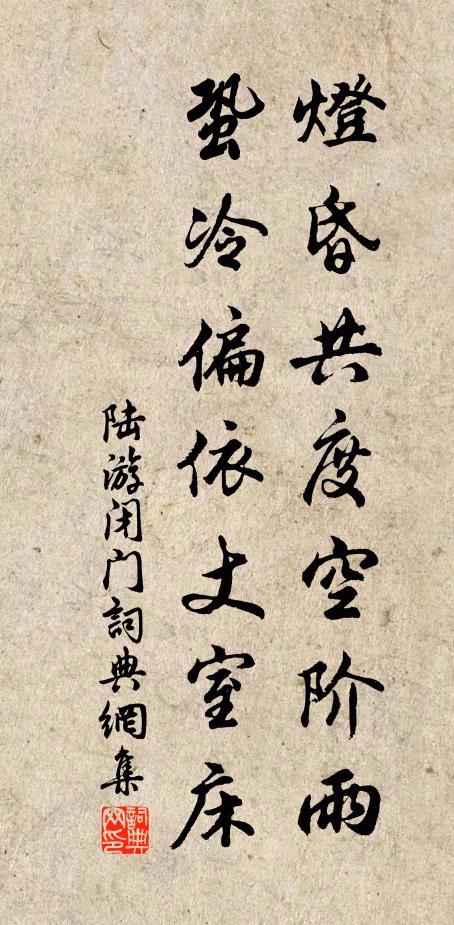 燈昏共度空阶雨
蛩冷偏依丈室床
陆游闭门詞典網集
詞典网印